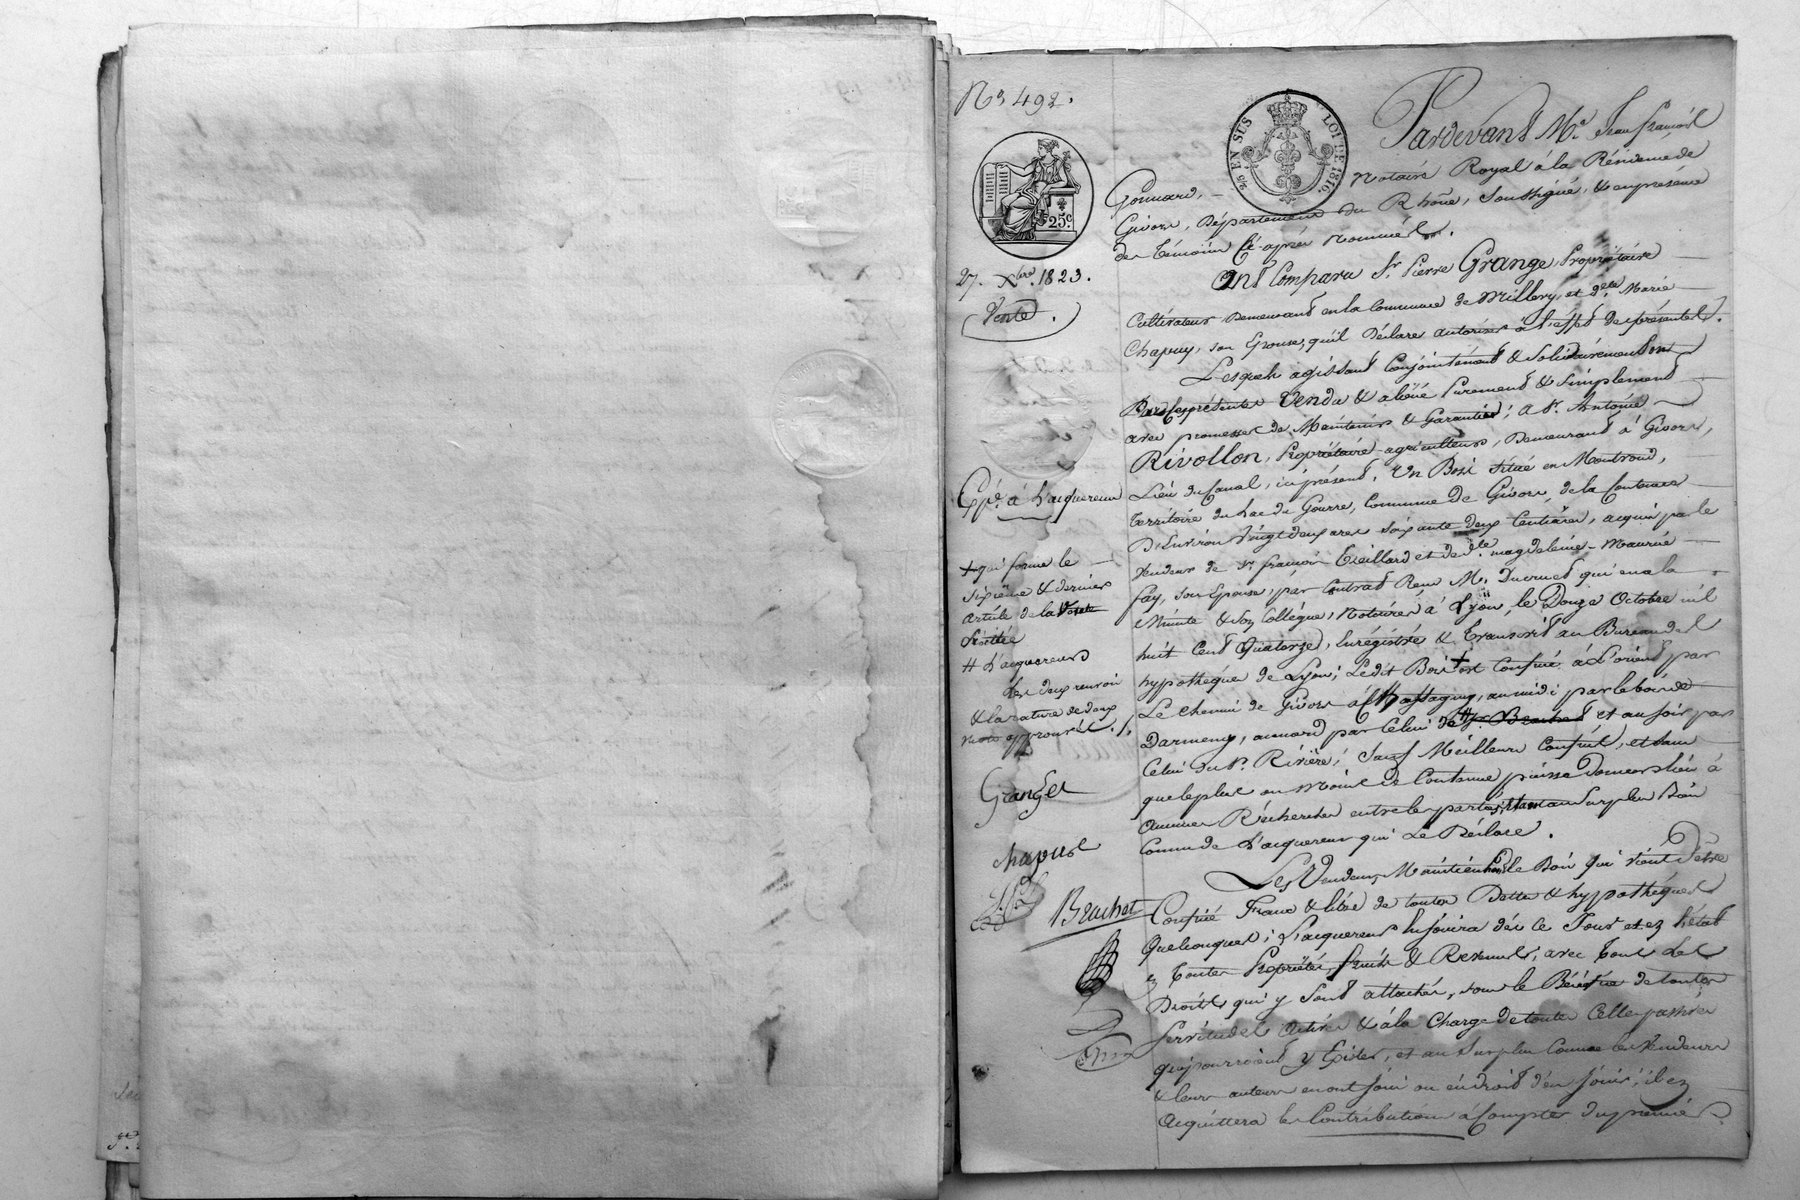 N° 492.
25 EN SUS
LOI DE 1816.
25.c
27. Xbre. 1823.
Vente.
Pardevant Me. Jean françois
Gonnard, - Notaire Royal à la Résidence de
Givors, Département du Rhône, Soussigné, & en présence
des témoins Ci-après nommés.
Ont Comparu Sr. Pierre Grange, Propriétaire
Cultivateur Demeurant en la Commune de Millery, et dlle. Marie
Chapuy, son Epouse, qu'il Déclare autoriser à l'effet des présentes.
Lesquels agissant Conjointement & Solidairement ont
Par Ces présentes Vendu & aliéné Purement & Simplement
avec promesse de Maintenir & Garantir; a Sr. Antoine
Rivollon, Propriétaire-agriculteur, Demeurant à Givors,
Lieu du Canal, ici présent, Un Bois situé en Montrond,
territoire du Lac du Gourre, Commune de Givors, de la Contenue
D'Environ Vingt deux ares soixante deux Centiares, acquis par le
Vendeur de Sr. françois et de dlle. magdeleine-Maurice
fay, son Epouse, par Contrat Reçu Me. Ducruet qui en a la
Minute & son Collègue, Notaires à Lyon, le Douze Octobre mil
huit Cent Quatorze, Enregistré & Transcrit au Bureau des
hypothèques de Lyon; Ledit Bois + est Confiné à l'orient par
Le Chemin de Givors à Chassagny, au midi par le bois de
Darmeny, au nord par Celui de Sr. Brachet et au soir par
Celui du Sr. Rivière; Sauf Meilleurs Confins, et sans
que le plus ou Moins de Contenue puisse Donner lieu à
Aucunes Recherches entre les parties, étant au Surplus Bien
Connu de L'acquéreur qui Le Déclare.
Les Vendeurs Maintiendront le Bois qui vient d'être
Confiné Franc & libre de toutes Dettes & hypothèques
Quelconques; L'acquéreur En Jouira dès ce Jour et en l'état
en toutes Propriétés, fruits & Revenus, avec Tous Les
Droits qui y Sont attachés, sous le Bénéfice de toutes
Servitudes Actives & à la Charge de toutes Celles passives
qui pourroient y Exister, et au Surplus Comme les Vendeurs
& leurs auteurs en ont Joui ou eu droit d'en Jouir; il en
Acquittera les Contributions à Compter du premier
Expn. à L'acquéreur
+ qui forme le
sixième & dernier
article de la Vente
# L'acquéreur
Les deux renvois
& la rature de deux
mots approuvés.
Grange
chapuis
Brachet